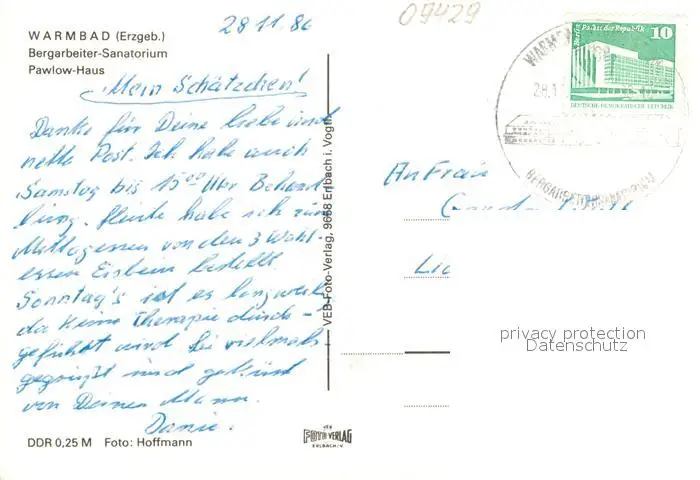 28.11.86
09429
WARMBAD (Erzgeb.)
Bergarbeiter-Sanatorium
Pawlow-Haus
Mein Schätzchen!
Danke für Deine liebe und
nette Post. Ich habe auch
Samstag bis 15⁰⁰ Uhr Behand
lung. Heute habe ich zum
Mittagessen von den 3 Wahl-
essen Eisbein bestellt.
Sonntag's ist es langweilig
da keine Therapie durch-
geführt wird. Sei vielmals
gegrüßt und geküsst
von Deinem Mann.
DDR 0,25 M Foto: Hoffmann
VEB Foto-Verlag, 9658 Erlbach i. Vogtl.
FOTO VERLAG
ERLBACH/V.
Berlin Palast der Republik
10
DEUTSCHE DEMOKRATISCHE REPUBLIK
28.1
BERGARBEITERSANATORIUM
An Frau
privacy protection
Datenschutz